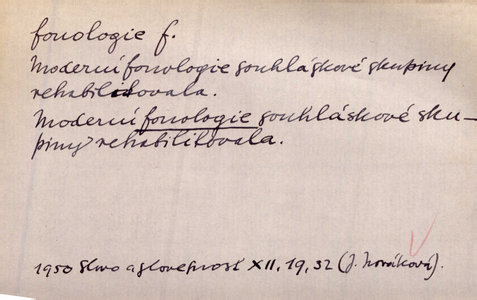 fonologie f.
Moderní fonologie souhláskové skupiny
rehabilitovala.
Moderní fonologie souhláskové sku-
piny rehabilitovala.
1950 Slovo a slovesnost XII, 19, 32 (J. Nováková).